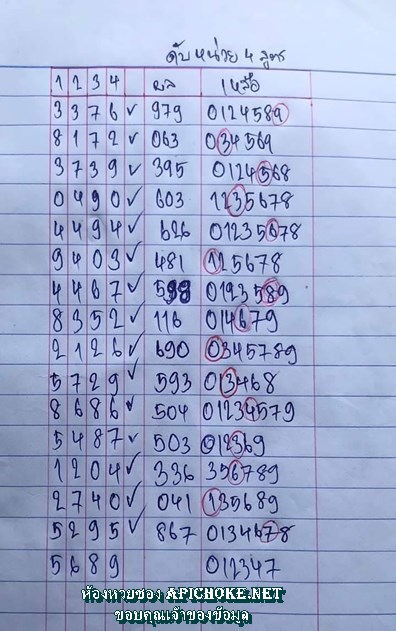 ดับหน่วย 4 สูตร
1 2 3 4 ผล เหลือ
3 3 7 6 ✓ 979 0124589
8 1 7 2 ✓ 063 034569
3 7 3 9 ✓ 395 0124568
0 4 9 0 ✓ 603 1235678
4 4 9 4 ✓ 626 01235678
9 4 0 3 ✓ 481 125678
4 4 6 7 ✓ 598 0123589
8 3 5 2 ✓ 116 014679
2 1 2 6 ✓ 690 0345789
5 7 2 9 ✓ 593 013468
8 6 8 6 ✓ 504 01234579
5 4 8 7 ✓ 503 012369
1 2 0 4 ✓ 336 356789
2 7 4 0 ✓ 041 135689
5 2 9 5 ✓ 867 0134678
5 6 8 9 012347
ห้องหวยซอง APICHOKE.NET
ขอบคุณเจ้าของข้อมูล